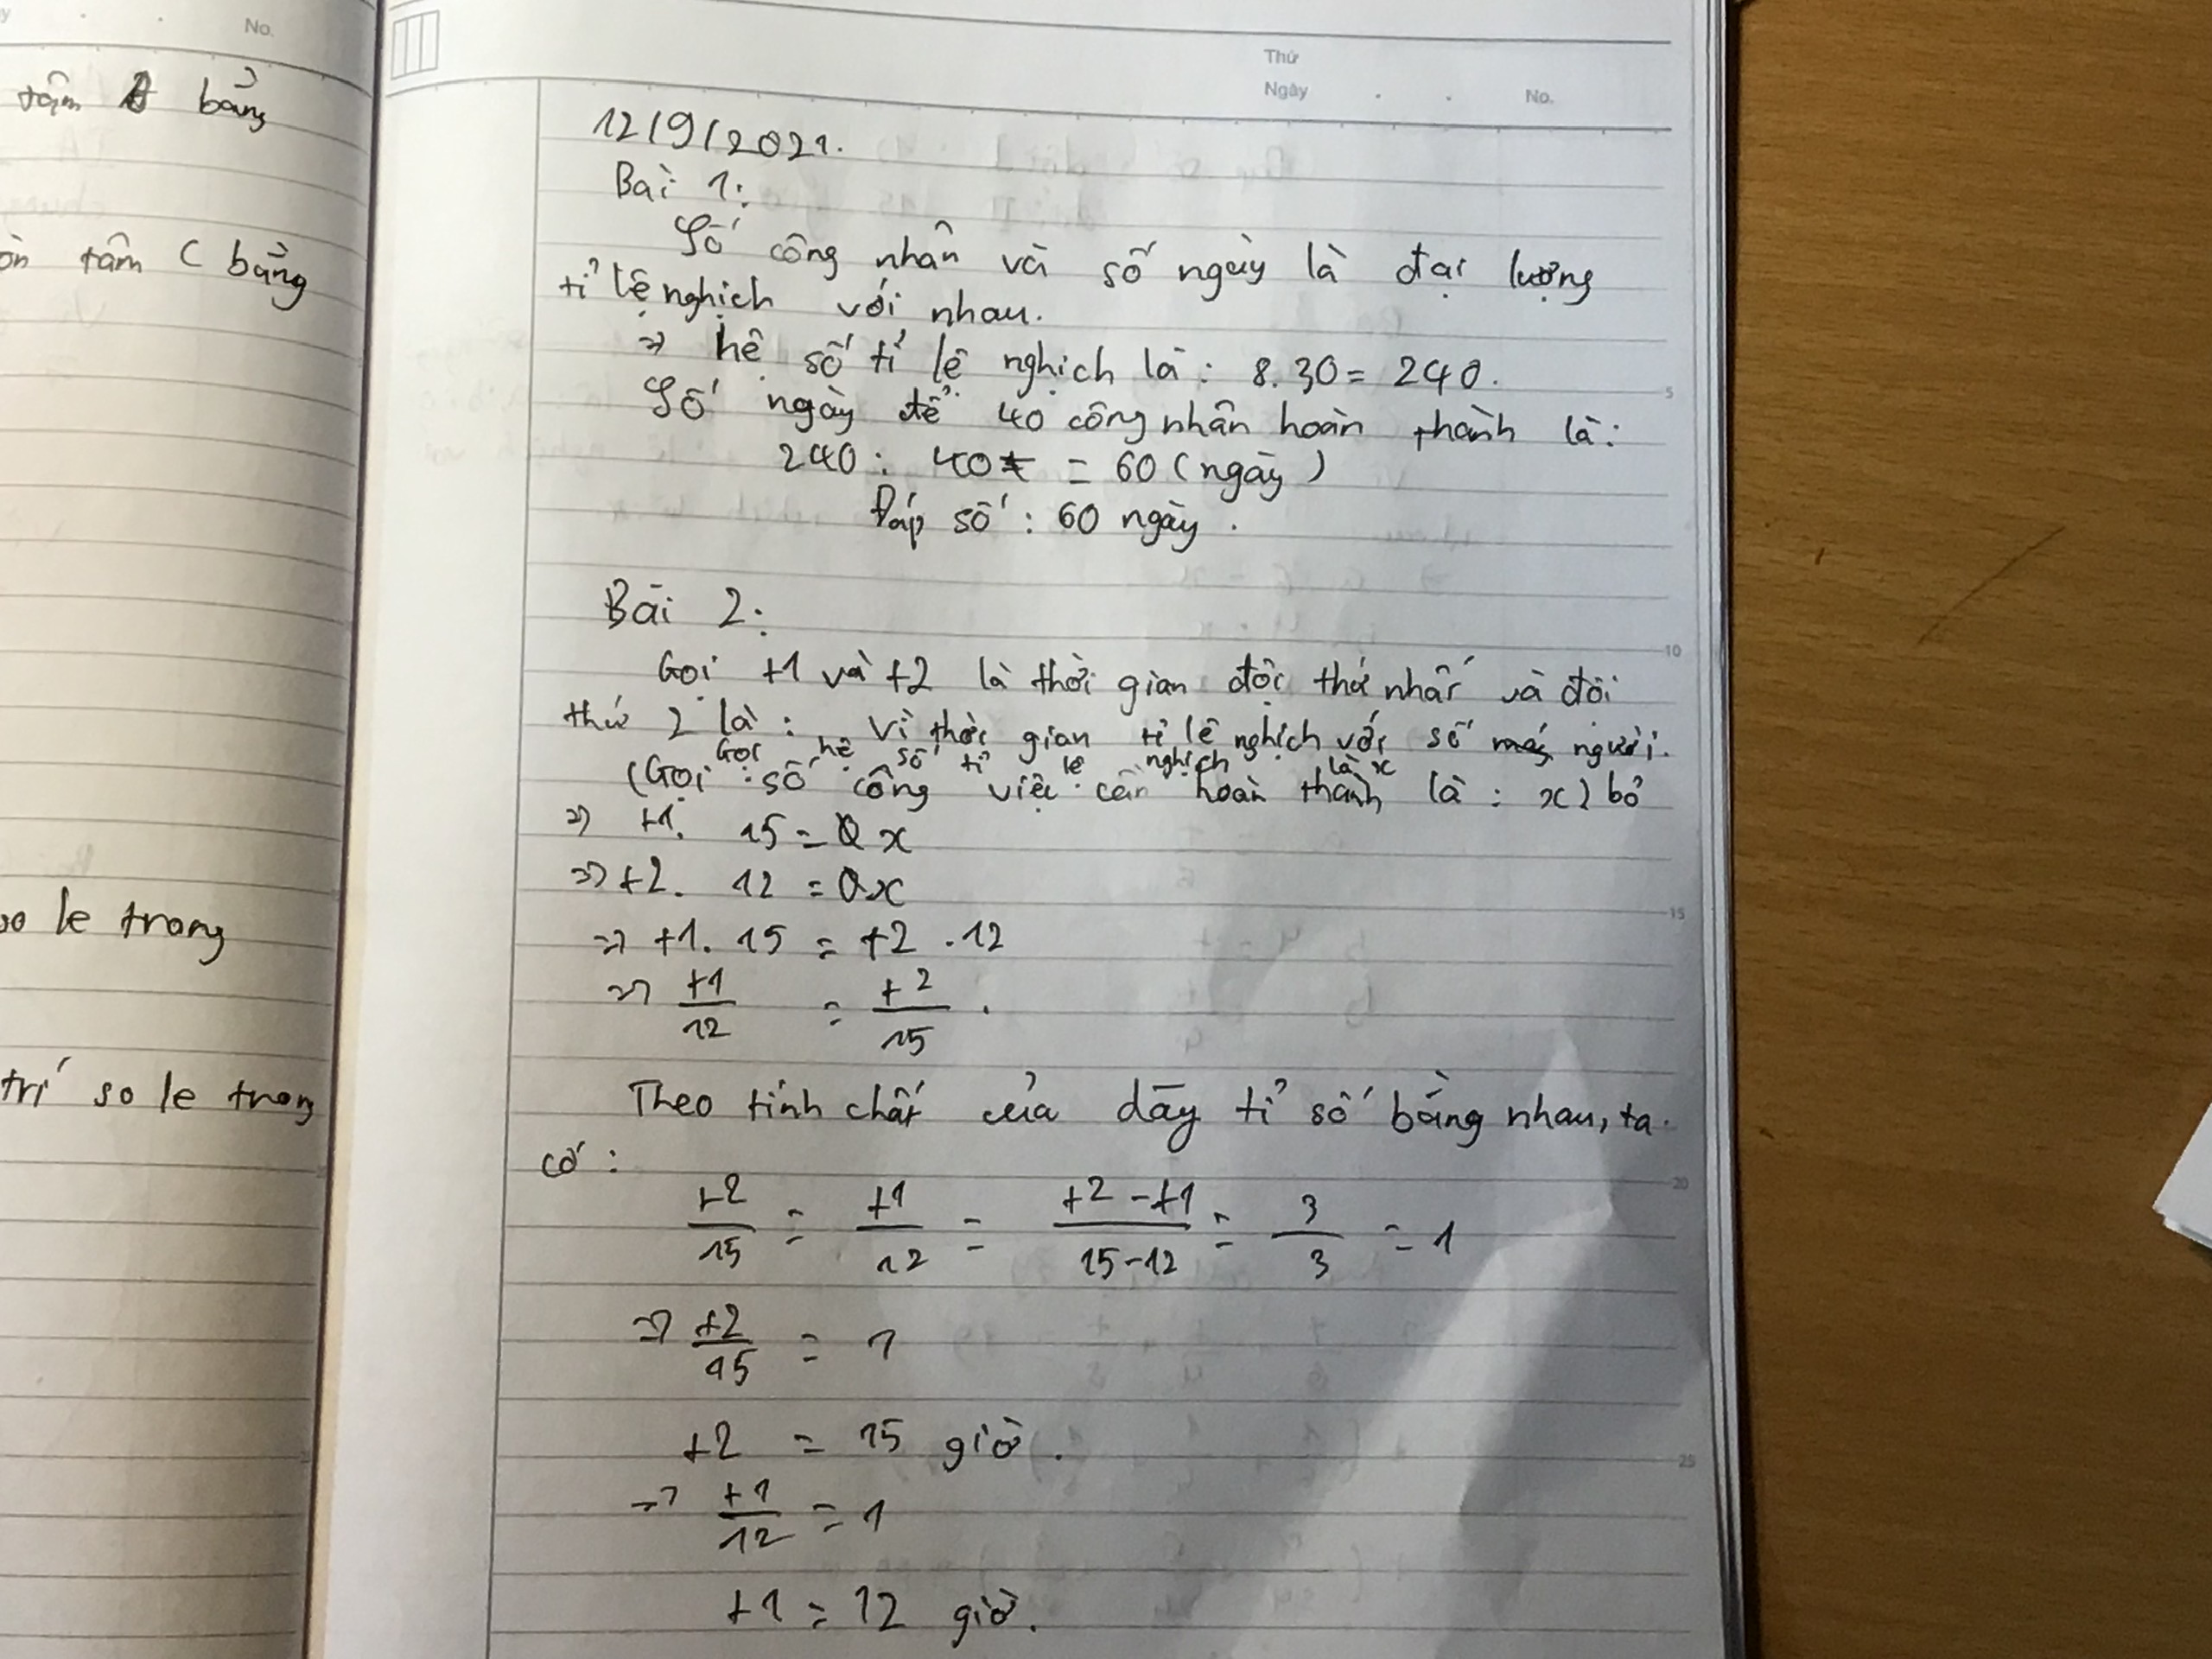 No.
tâm B bằng
tâm C bằng
so le trong
trí so le trong
Thứ
Ngày . . No.
12/9/2021.
Bài 1:
Số công nhân và số ngày là đại lượng
tỉ lệ nghịch với nhau.
=> hệ số tỉ lệ nghịch là: 8.30 = 240.
5
Số ngày để 40 công nhân hoàn thành là:
240 : 40 = 60 (ngày)
Đáp số: 60 ngày.
Bài 2:
10
Gọi t1 và t2 là thời gian đội thứ nhất và đội
thứ 2 là: Vì thời gian tỉ lệ nghịch với số người.
Gọi hệ số tỉ lệ nghịch là x
(Gọi số công việc cần hoàn thành là: x) bỏ
=> t1. 15 = x
=> t2. 12 = x
15
=> t1. 15 = t2 . 12
=> t1/12 = t2/15 .
Theo tính chất của dãy tỉ số bằng nhau, ta
có:
20
t2/15 = t1/12 = t2-t1/15-12 = 3/3 = 1
=> t2/15 = 1
t2 = 15 giờ.
25
=> t1/12 = 1
t1 = 12 giờ.